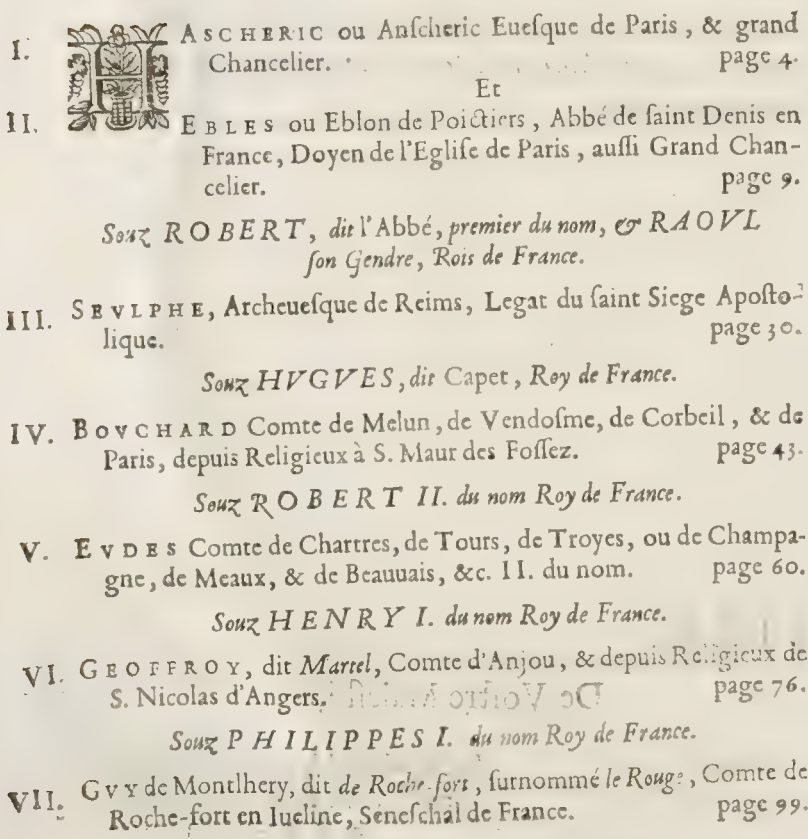 I. ASCHERIC ou Anſcheric Eueſque de Paris, & grand
Chancelier. page 4.
Et
II. EBLES ou Eblon de Poictiers, Abbé de ſaint Denis en
France, Doyen de l'Egliſe de Paris, auſſi Grand Chan-
celier. page 9.
Souz ROBERT, dit l'Abbé, premier du nom, & RAOVL
ſon Gendre, Rois de France.
III. SEVLPHE, Archeueſque de Reims, Legat du ſaint Siege Apoſto-
lique. page 30.
Souz HVGVES, dit Capet, Roy de France.
IV. BOVCHARD Comte de Melun, de Vendoſme, de Corbeil, & de
Paris, depuis Religieux à S. Maur des Foſſez. page 43.
Souz ROBERT II. du nom Roy de France.
V. EVDES Comte de Chartres, de Tours, de Troyes, ou de Champa-
gne, de Meaux, & de Beauuais, &c. II. du nom. page 60.
Souz HENRY I. du nom Roy de France.
VI. GEOFFROY, dit Martel, Comte d'Anjou, & depuis Religieux de
S. Nicolas d'Angers. page 76.
Souz PHILIPPES I. du nom Roy de France.
VII. GVY de Montlhery, dit de Roche-fort, ſurnommé le Rouge, Comte de
Roche-fort en Iueline, Seneſchal de France. page 99.